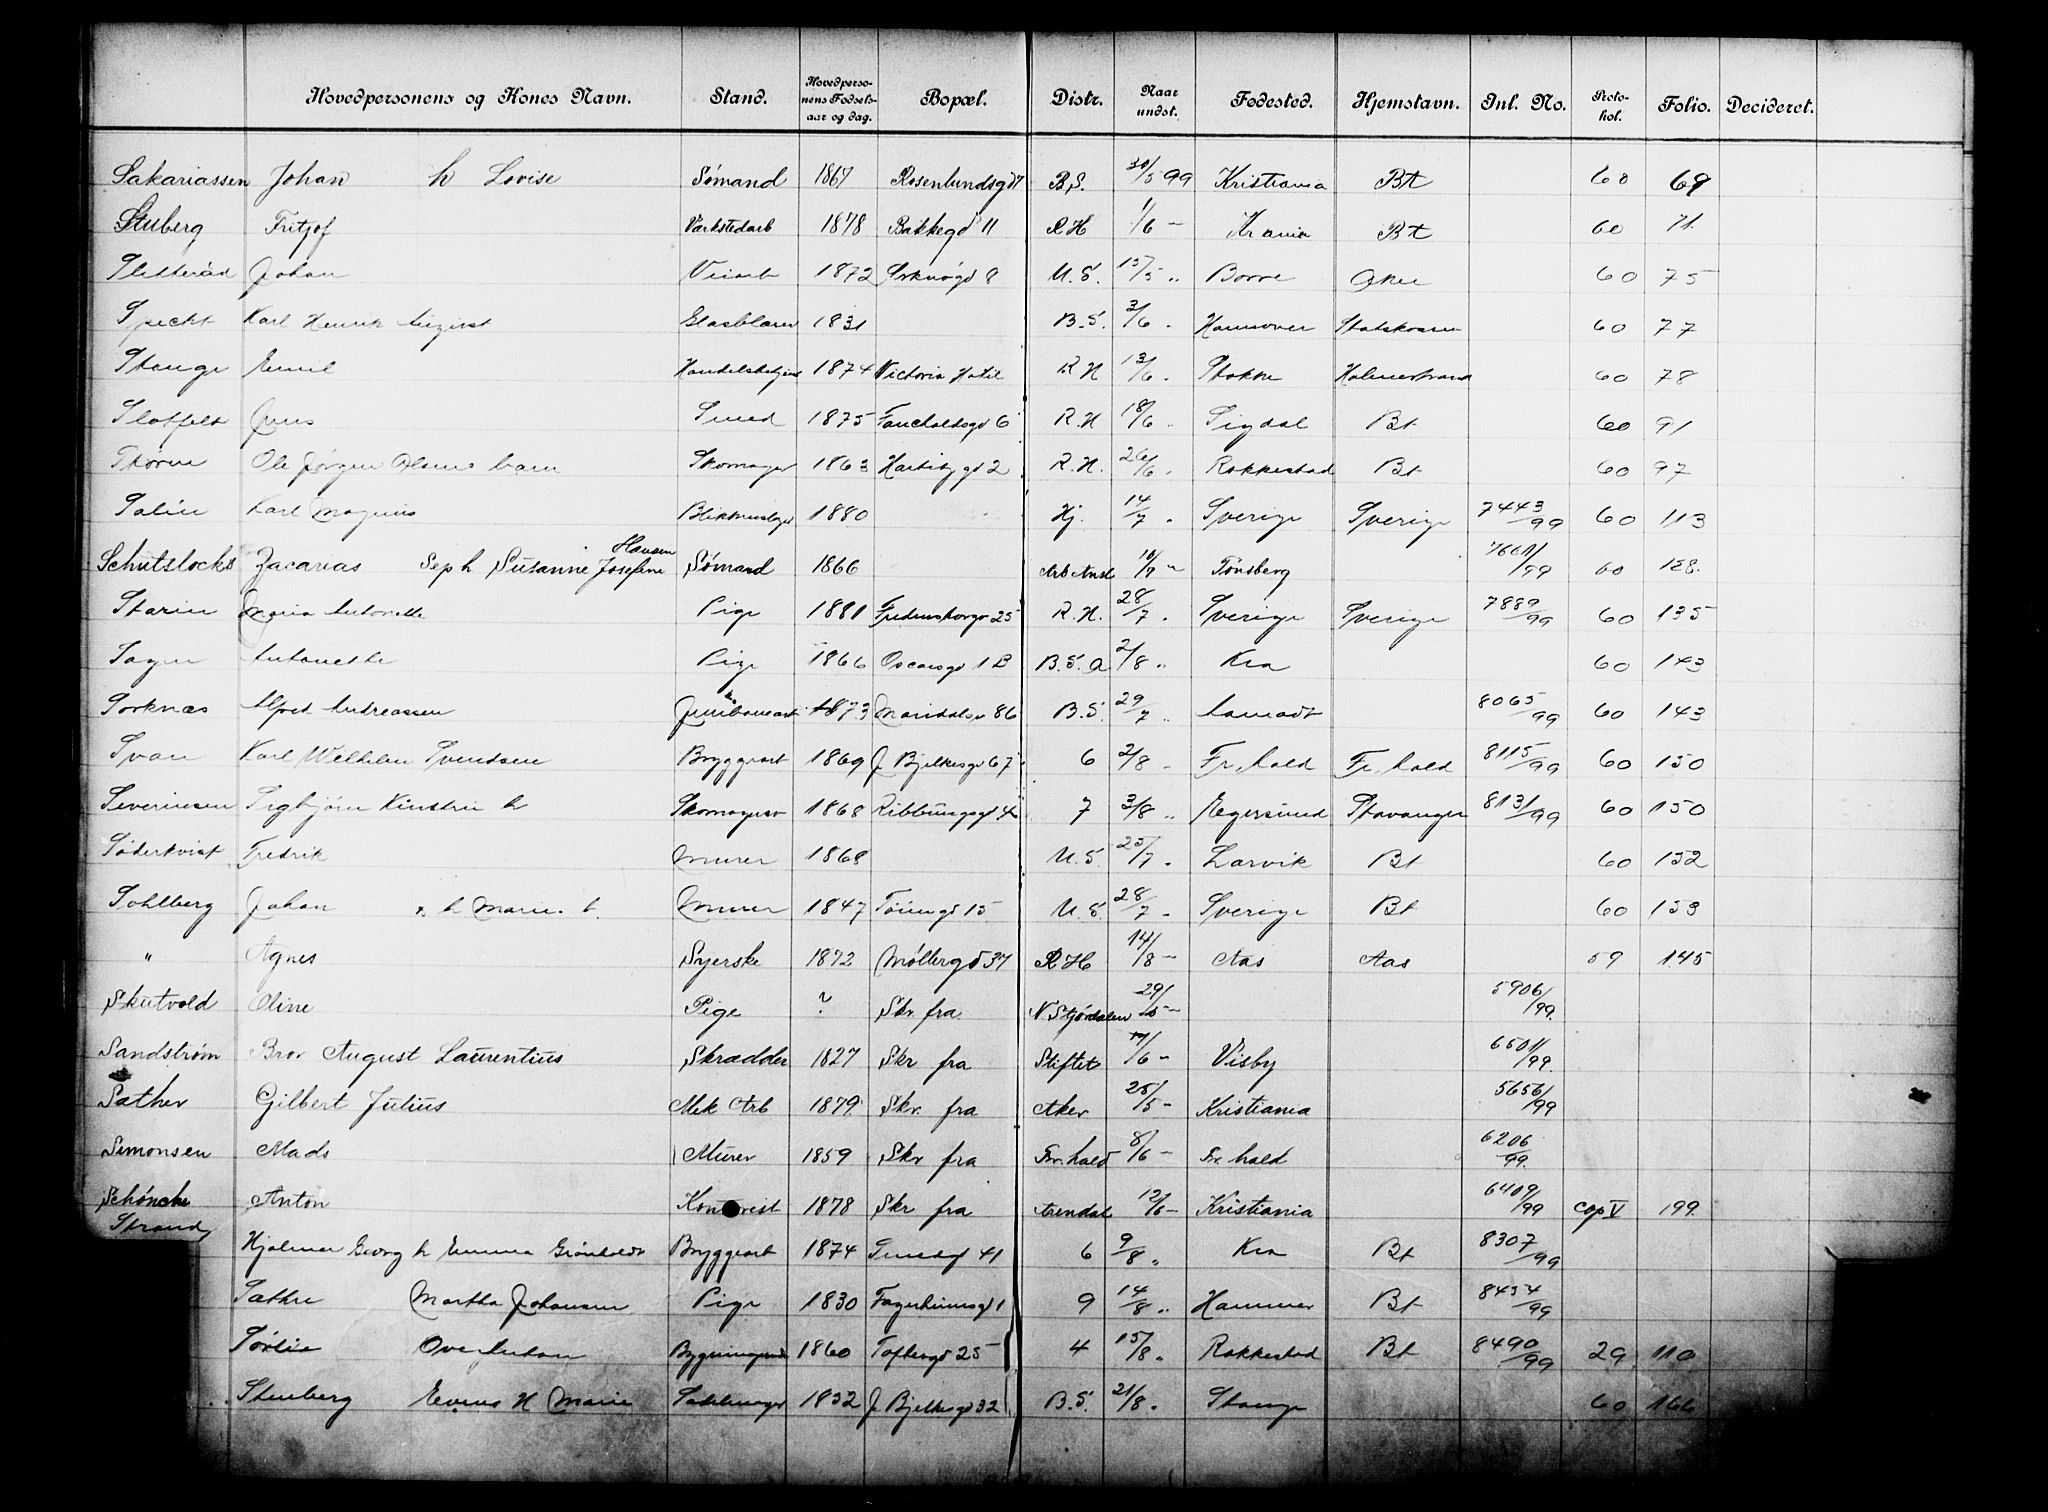 Hovedpersonens og Kones Navn. Stand. Hovedperso-nens Fødsels-aar og dag. Bopæl. Distr. Naar undst. Fødested. Hjemstavn. Inl. No. Proto-kol. Folio. Decideret.
Sakariassen Johan h Lovise Sømand 1867 Rosenlundsgd 7 B.S. 30/5 99 Kristiania Bt 60 69
Stuberg Fritjof Værkstedarb 1878 Bakkegd 11 R H 1/6 — Krania Bt 60 71
Sletteråd Johan Veiarb 1872 8 U.S. 15/5 „ Borre Aker 60 75
Specht Karl Henrik August Glasblåser 1831 B.S. 3/6 „ Hannover Statskassen 60 77
Stange Emil Handelsbetjent 1874 Victoria Hotel R H 13/6 „ Stokke Holmestrand 60 78
Slotfelt Jens Smed 1875 Fauchaldsgd 6 R.H 18/6 „ Sigdal Bt 60 91
Skørne Ole Jørgen Olsens barn Skomager 1863 2 R.H. 26/6 „ Rakkestad Bt 60 97
Salin Karl Magnus Blikkenslager 1880 Hj. 14/7 „ Sverige Sverige 7443/99 60 113
Schutslocks Zacarias Sep h Susanne Josefine Hansen Sømand 1866 Arb Anst 10/7 — Tønsberg 7661/99 60 128.
Starin Maria Antonette Pige 1881 Fredensborgv 25 R.H. 28/7 „ Sverige Sverige 7889/99 60 135
Sagen Antonette Pige 1866 Oscarsgd 1 B B.S. a 2/8 „ Kra 60 143
Sorknæs Alfred Andreassen Jernbanearb 1873 Maridalsv 86 B.S. 29/7 „ 8065/99 60 143
Svan Karl Wilhelm Svendsen Bryggearb 1869 J Bjelkesgd 67 6 2/8 „ Fr.hald Fr.hald 8115/99 60 150
Severinsen Sigbjørn Kinstrin h Skomager 1868 Ribbungsgd 4 7 3/8 „ Egersund Stavanger 8131/99 60 150
Søderkvist Fredrik Murer 1868 U.S. 25/7 „ Larvik Bt 60 152
Sohlberg Johan h Marie Murer 1847 Tøiengd 15 U.S. 28/7 „ Sverige Bt 60 153
„ Agnes Syerske 1872 Møllergd 37 R H 14/8 — Aas Aas 59 145
Skutvold Oline Pige ? Skr. fra N. Stjørdalen 29/5 — 5906/99.
Sandstrøm Bror August Laurentius Skradder 1827 Skr fra Stiftet /6 — Visby 6501/99.
Sæther Gilbert Julius Mek Arb 1879 Skr. fra Aker 25/5 — Kristiania 5656/99
Simonsen Mads Murer 1859 Skr fra Fr.hald 8/6 — Fr.hald 6206/99.
Schøncke Anton 1878 Skr fra Arendal 12/6 — Kristiania 6409/99 Cop V 199.
Strand Hjalmar Georg h Emma Grønholdt Bryggearb 1874 Smedgd 41 6 9/8 „ Kra Bt 8307/99
Sæthre Martha Johansen Pige 1830 Fagerheimsgd 1 9 14/8 „ Hammer Bt 8434/99
Sørlie Ove Anton 1860 Toftesgd 25 4 15/8 „ Rakkestad Bt 8490/99 29 110
Stenberg Evens H Marie Sadelmager 1832 J Bjelkesgd 32 B.S. 21/8 „ Stange 60 166